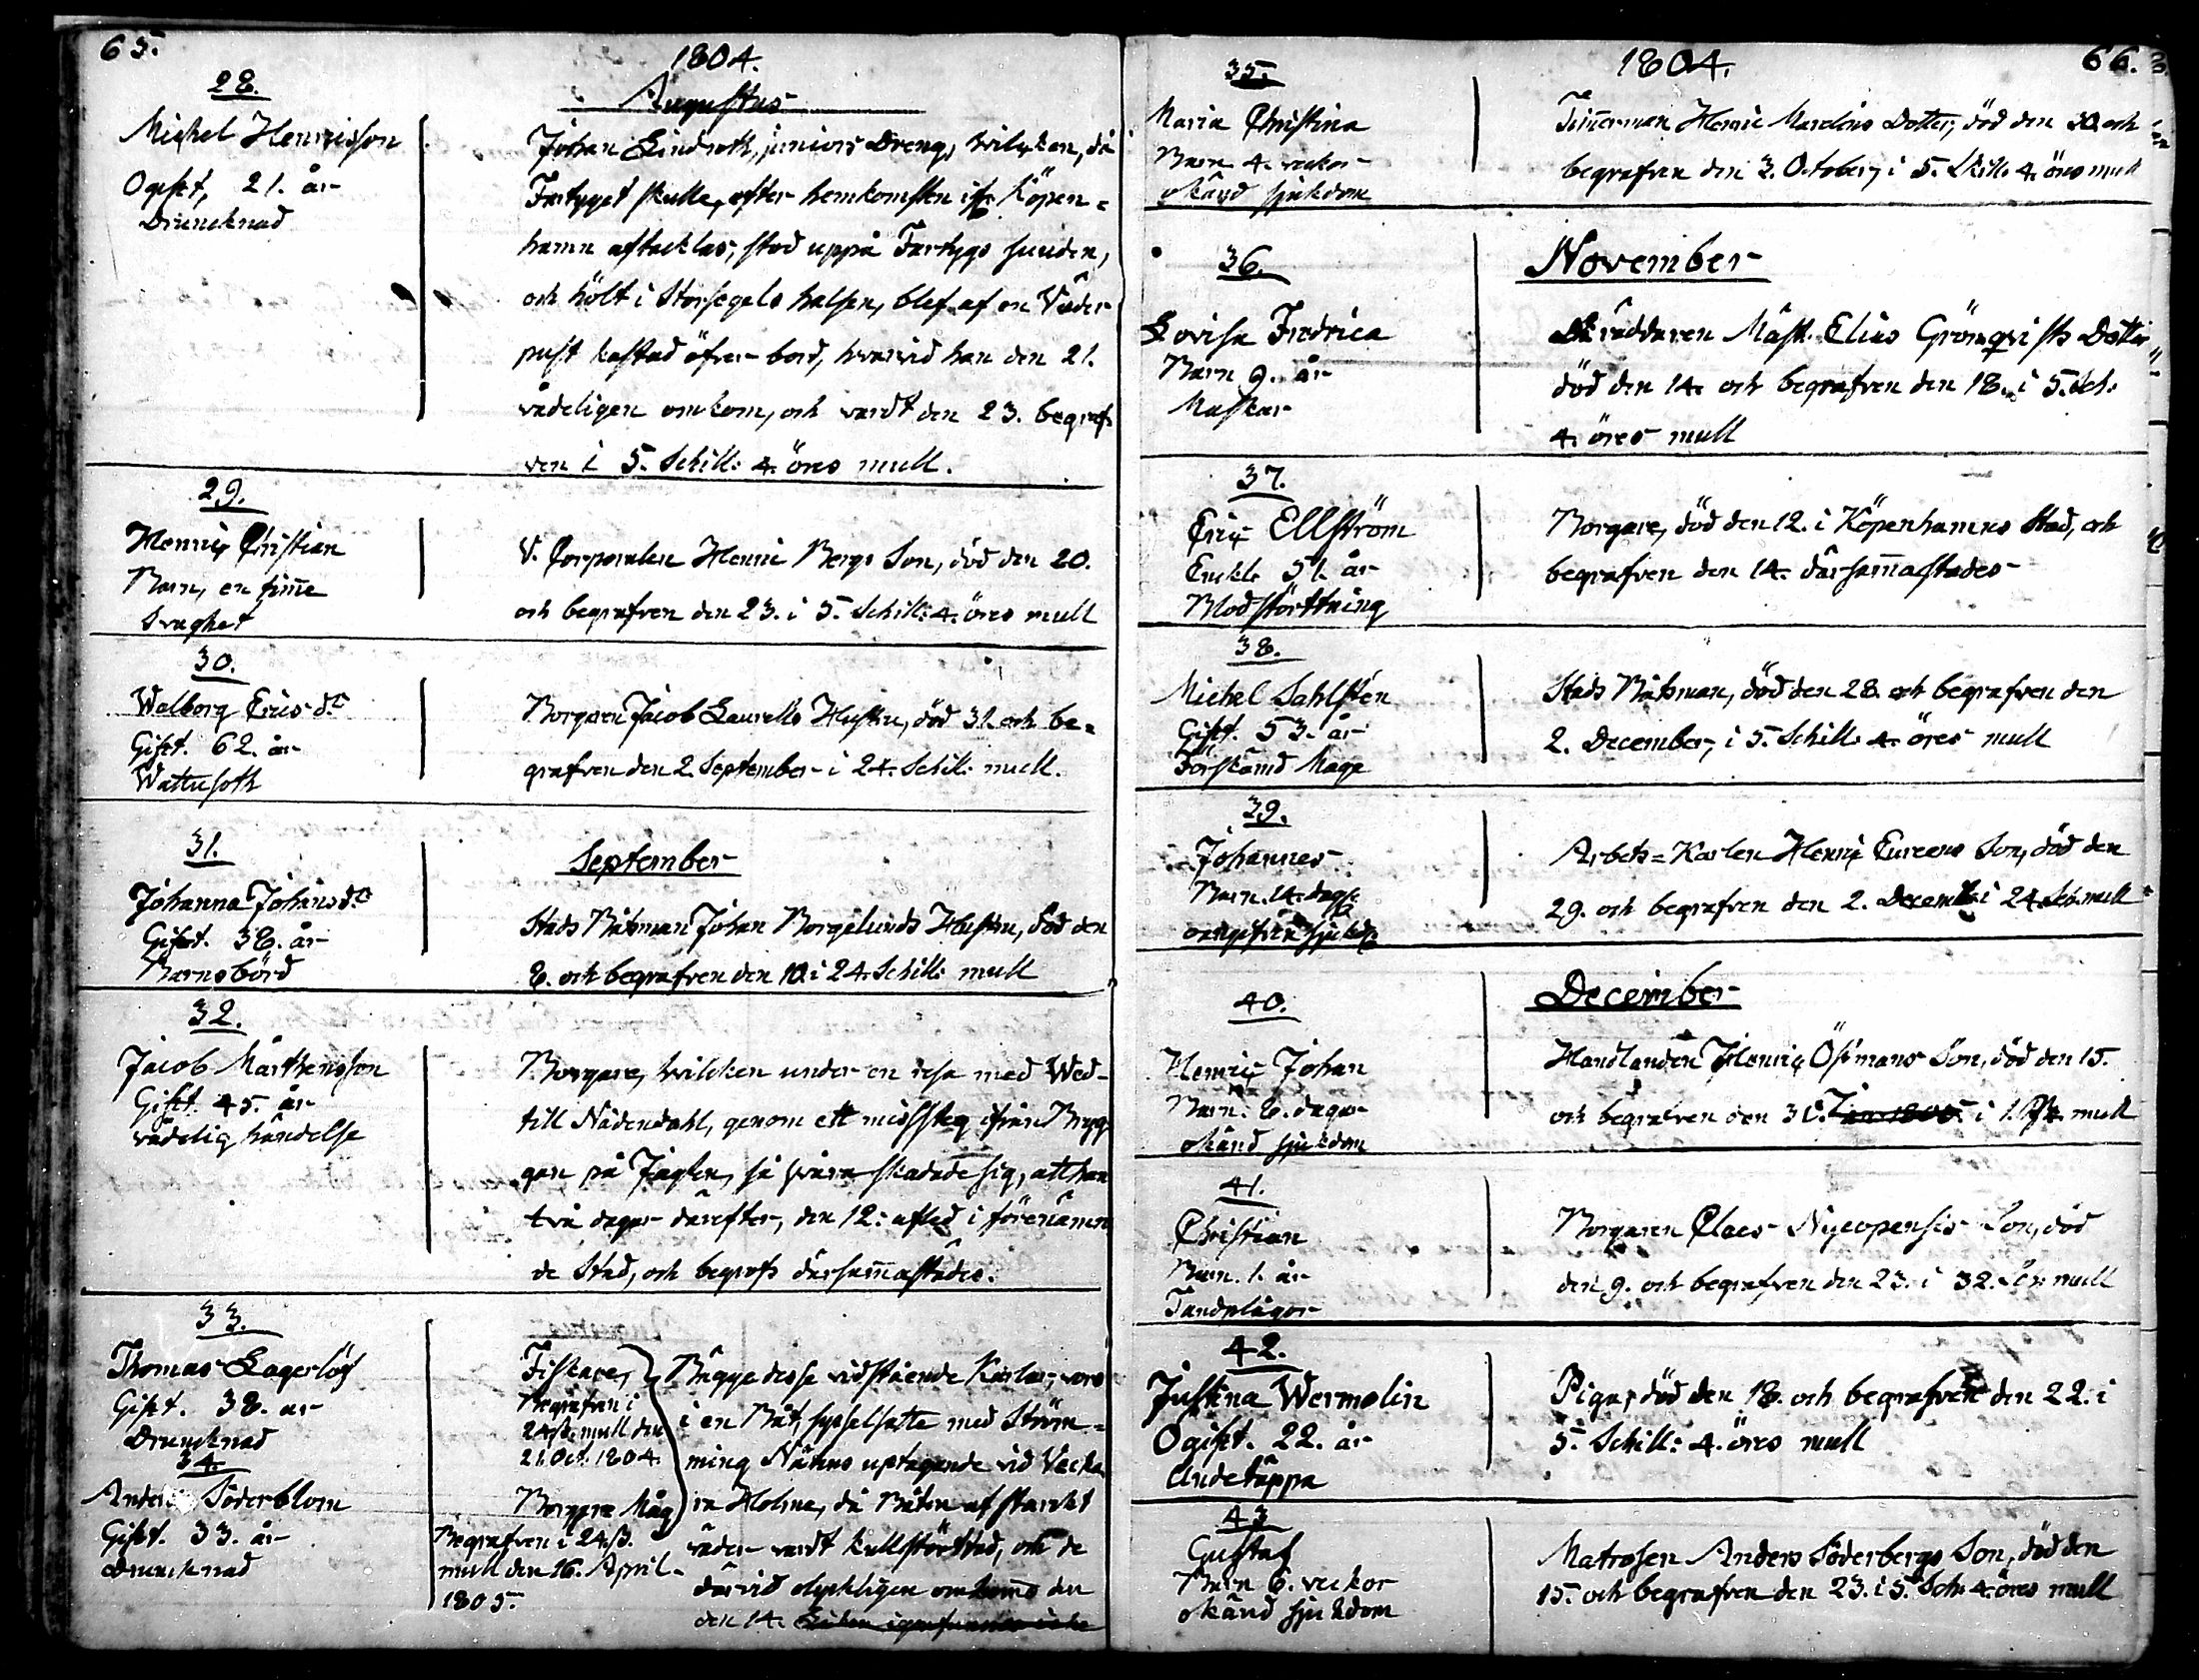 65.
1804.
Augustus
28.
Michel Henricsson
Ogift, 21. år
Druncknad
Johan Lindroth, juniors Dreng, hvilcken, då
Fartyget skulle, efter hemkomsten ifr. Köpen=
hamn aftacklas, stod uppå Fartygs sunden,
och hölt i Storsegels halsen, blef af en Väder
pust kastad öfver bord, hvarvid han den 21.
vådeligen omkom, och vardt den 23. begraf-
ven i 5. Schill: 4. öres mull.
29.
Henric Christian
Barn, en time
Svaghet
V. Corporalen Henric Bergs Son, död den 20.
och begrafven den 23. i 5. Schill: 4. öres mull
30.
Walborg Ericsdr
Gift. 62. år
Wattusoth
Borgaren Jacob Laurells Hustru, död 31. och be=
grafven den 2. September i 24. Schill: mull.
31.
September
Johanna Johansdr
Gift. 38. år
Barnsbörd
Stads Båtsman Johan Borgelunds Hustru, död den
8. och begrafven den 10. i 24. Schill: mull
32.
Jacob Mårthensson
Gift. 45. år
vådelig händelse
Borgare, hvilcken under en resa med Wed
till Nådendahl, genom ett missteg ifrån Bryg
gan på Jagten, så svåra skadade sig, att han
två dagar derefter, den 12. afled i förenämn
de Stad, och begrofs därsammastädes.
33.
Thomas Lagerlöf
Gift. 38. år
Druncknad
Fiskare,
Begrafven i
24 sk. mull den
21. Oct. 1804.
34.
Anders Söderblom
Gift. 33. år
Druncknad
Borgare Måg
Begrafven i 24. sk.
mull den 16. April
1805.
Bägge desse vidstående Karlar, voro
i en Båt, sysselsatte med Ström=
ming Nätens uptagande vid Vecka
ra Holme, då Båten af starckt
väder vardt kullstörttad, och de
därvid olyckligen omkommo den
den 14.
1804.
66.
35.
Maria Christina
Barn 4. veckor
okänd sjukdom
Timerman Henric Dotter, död den 30. och
begrafven den 3. October, i 5. Skill: 4. öres mull
November
36.
Lovisa Fredrica
Barn 9. år
Maskar
Skräddaren Mäst. Elias Grönqvists Dotter
död den 14. och begrafven den 18. i 5. Sch:
4. öres mull
37.
Eric Ellström
Enckl. 51. år
Blodstörttning
Borgare, död den 12. i Köpenhamns Stad, och
begrafven den 14. därsammastädes
38.
Michel Sahlstén
Gift. 53. år
Förskämd Mage
Stads Båtsman, död den 28. och begrafven den
2. December, i 5. Schill: 4. öres mull
39.
Johannes
Barn. 14. dagar
oangifven sjukd.
Arbets=Karlen Henric Son, död den
29. och begrafven den 2. Decemb. i 24. Sch. mull
December
40.
Henric Johan
Barn. 8. dagar
okänd sjukdom
Handlanden Henric Östmans Son, död den 15.
och begrafven den 30. Jan. 1805 i mull
41.
Christian
Barn. 1. år
Tandplågor
Borgaren Claes Nycopensis Son, död
den 9. och begrafven den 23. i 32. Sch: mull
42.
Justina Wermelin
Ogift. 22. år
Andetäppa
Piga, död den 18. och begrafven den 22. i
5. Schill: 4. öres mull
43
Gustaf
Barn 6. veckor
okänd sjukdom
Matrosen Anders Söderbergs Son, död den
15. och begrafven den 23. i 5. Sch: 4. öres mull